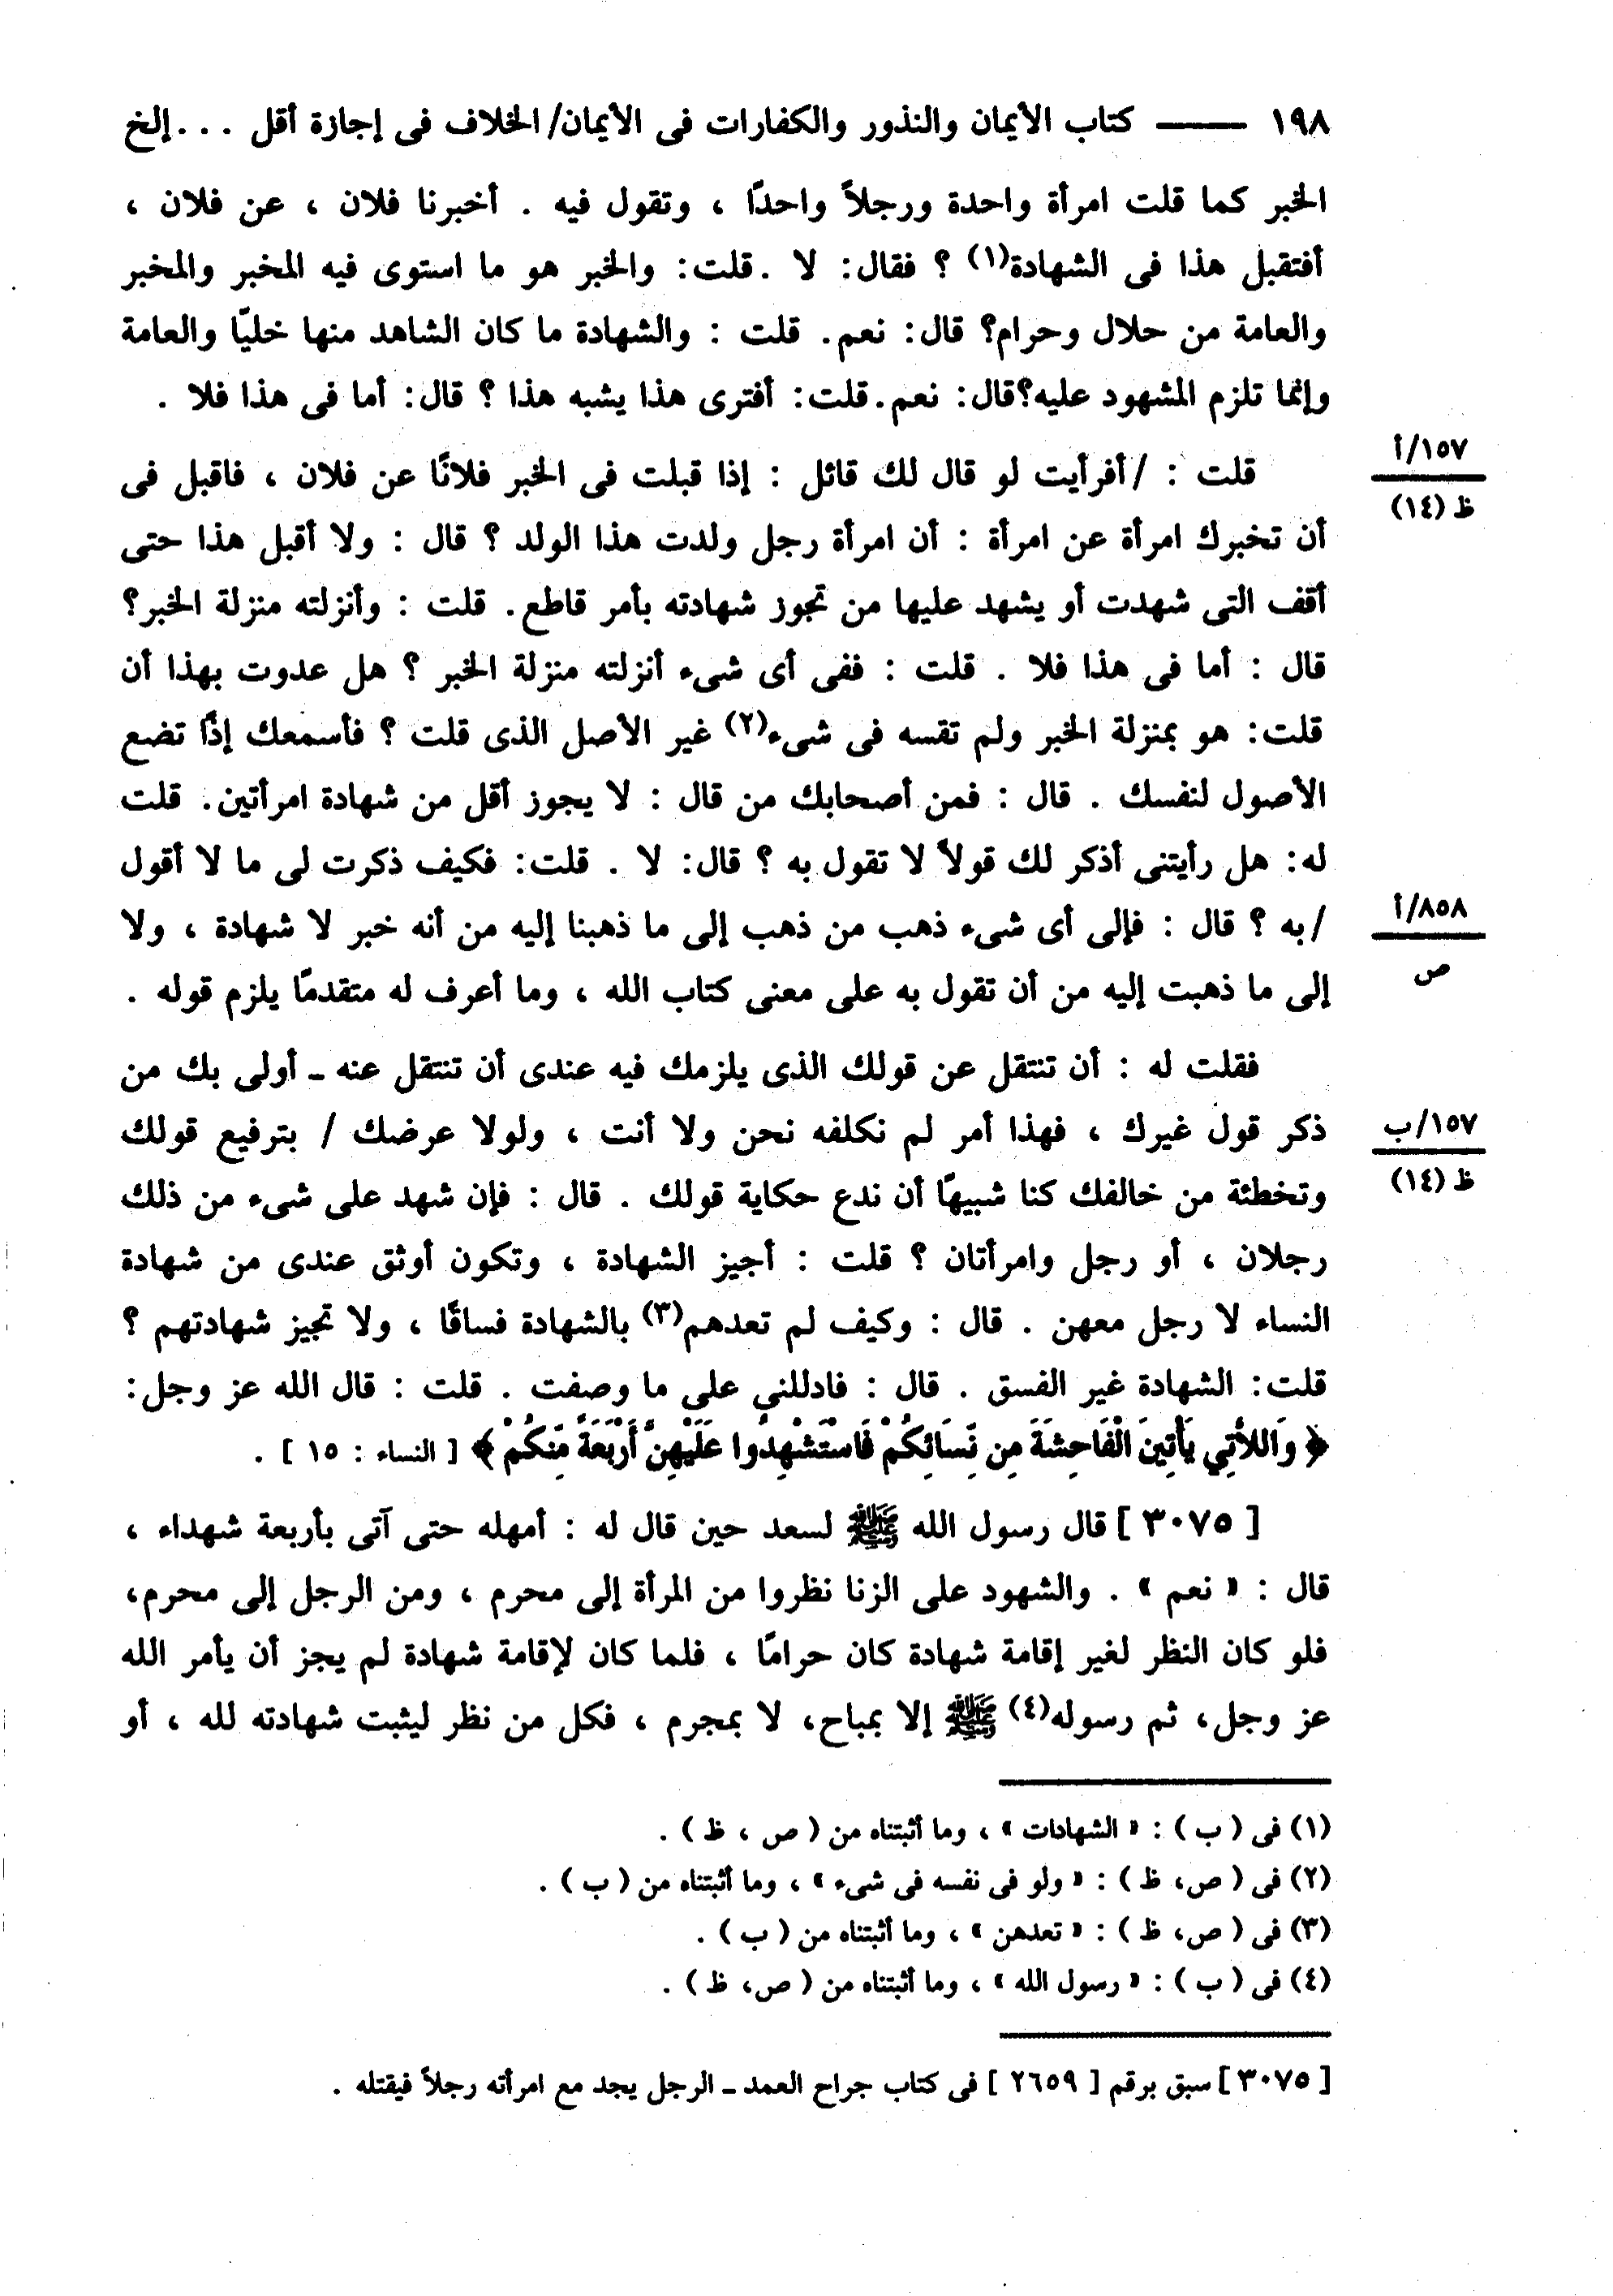 ١٩٨ ــــــ كتاب الأيمان والنذور والكفارات فى الأيمان/ الخلاف فى إجازة أقل ... إلخ
الخبر كما قلت امرأة واحدة ورجلاً واحدًا ، وتقول فيه . أخبرنا فلان ، عن فلان ،
أفتقبل هذا فى الشهادة(١) ؟ فقال: لا .قلت: والخبر هو ما استوى فيه المخبر والمخبر
والعامة من حلال وحرام؟ قال: نعم. قلت : والشهادة ما كان الشاهد منها خليّا والعامة
وإنما تلزم المشهود عليه؟قال: نعم.قلت: أفترى هذا يشبه هذا ؟ قال: أما فى هذا فلا .
١٥٧/أ
ظ (١٤)
قلت : /أفرأيت لو قال لك قائل : إذا قبلت فى الخبر فلانًا عن فلان ، فاقبل فى
أن تخبرك امرأة عن امرأة : أن امرأة رجل ولدت هذا الولد ؟ قال : ولا أقبل هذا حتى
أقف التى شهدت أو يشهد عليها من تجوز شهادته بأمر قاطع. قلت : وأنزلته منزلة الخبر؟
قال : أما فى هذا فلا . قلت : ففى أى شىء أنزلته منزلة الخبر ؟ هل عدوت بهذا أن
قلت: هو بمنزلة الخبر ولم تقسه فى شىء(٢) غير الأصل الذى قلت ؟ فأسمعك إذًا تضع
الأصول لنفسك . قال : فمن أصحابك من قال : لا يجوز أقل من شهادة امرأتين. قلت
له: هل رأيتنى أذكر لك قولاً لا تقول به ؟ قال: لا . قلت: فكيف ذكرت لى ما لا أقول
/به ؟ قال : فإلى أى شىء ذهب من ذهب إلى ما ذهبنا إليه من أنه خبر لا شهادة ، ولا
٨٥٨/أ
ص
إلى ما ذهبت إليه من أن تقول به على معنى كتاب الله ، وما أعرف له متقدمًا يلزم قوله .
فقلت له : أن تنتقل عن قولك الذى يلزمك فيه عندى أن تنتقل عنه ـ أولى بك من
ذكر قول غيرك ، فهذا أمر لم نكلفه نحن ولا أنت ، ولولا عرضك / بترفيع قولك
١٥٧/ب
ظ (١٤)
وتخطئة من خالفك كنا شبيهًا أن ندع حكاية قولك . قال : فإن شهد على شىء من ذلك
رجلان ، أو رجل وامرأتان ؟ قلت : أجيز الشهادة ، وتكون أوثق عندى من شهادة
النساء لا رجل معهن . قال : وكيف لم تعدهم(٣) بالشهادة فساقًا ، ولا تجيز شهادتهم ؟
قلت: الشهادة غير الفسق . قال : فادللنى على ما وصفت . قلت : قال الله عز وجل:
﴿ وَاللاَّتِي يَأْتِينَ الْفَاحِشَةَ مِن نِّسَائِكُمْ فَاسْتَشْهِدُوا عَلَيْهِنَّ أَرْبَعَةً مِّنكُمْ ﴾ [ النساء : ١٥ ] .
[ ٣٠٧٥ ] قال رسول الله ﷺ لسعد حين قال له : أمهله حتى آتى بأربعة شهداء ،
قال : « نعم » . والشهود على الزنا نظروا من المرأة إلى محرم ، ومن الرجل إلى محرم،
فلو كان النظر لغير إقامة شهادة كان حرامًا ، فلما كان لإقامة شهادة لم يجز أن يأمر الله
عز وجل، ثم رسوله(٤) ﷺ إلا بمباح، لا بمجرم ، فكل من نظر ليثبت شهادته لله ، أو
(١) فى ( ب ) : « الشهادات » ، وما أثبتناه من ( ص ، ظ ) .
(٢) فى ( ص، ظ ) : « ولو فى نفسه فى شىء » ، وما أثبتناه من ( ب ) .
(٣) فى ( ص، ظ ) : « تعدهن » ، وما أثبتناه من ( ب ) .
(٤) فى ( ب ) : « رسول الله » ، وما أثبتناه من ( ص، ظ ) .
[ ٣٠٧٥ ] سبق برقم [ ٢٦٥٩ ] فى كتاب جراح العمد ـ الرجل يجد مع امرأته رجلاً فيقتله .